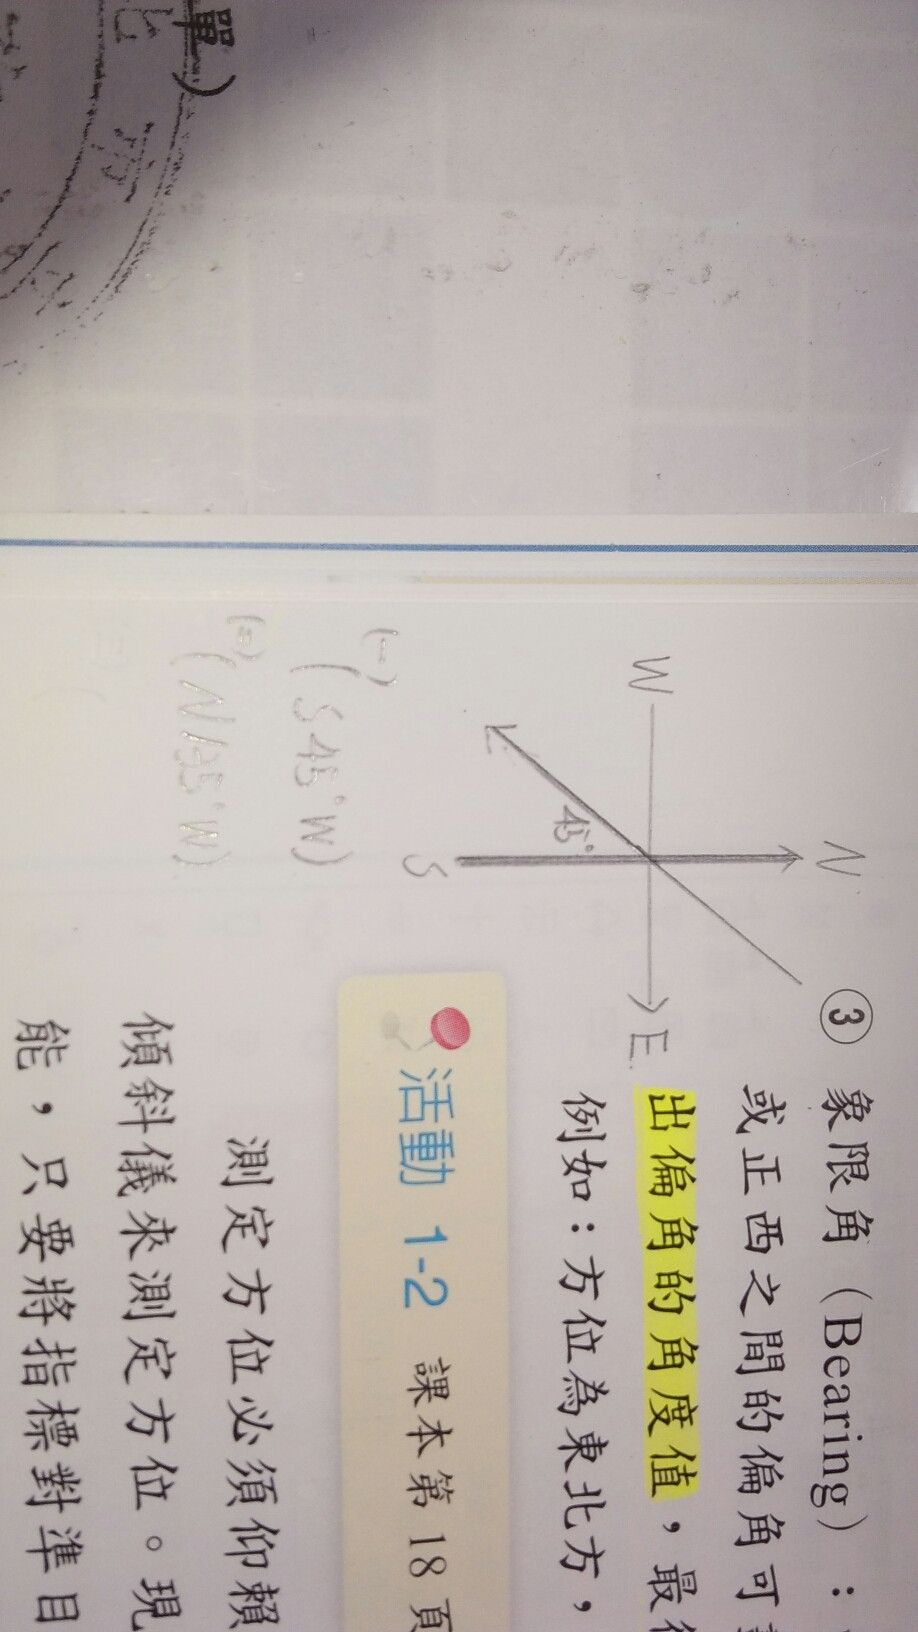 單)
N
W
E
45°
S
(一)
(S45°W)
(二)
(N135°W)
③ 象限角（Bearing）：
或正西之間的偏角可
出偏角的角度值，最
例如：方位為東北方，
活動 1-2 課本第18頁
測定方位必須仰賴
傾斜儀來測定方位。現
能，只要將指標對準目